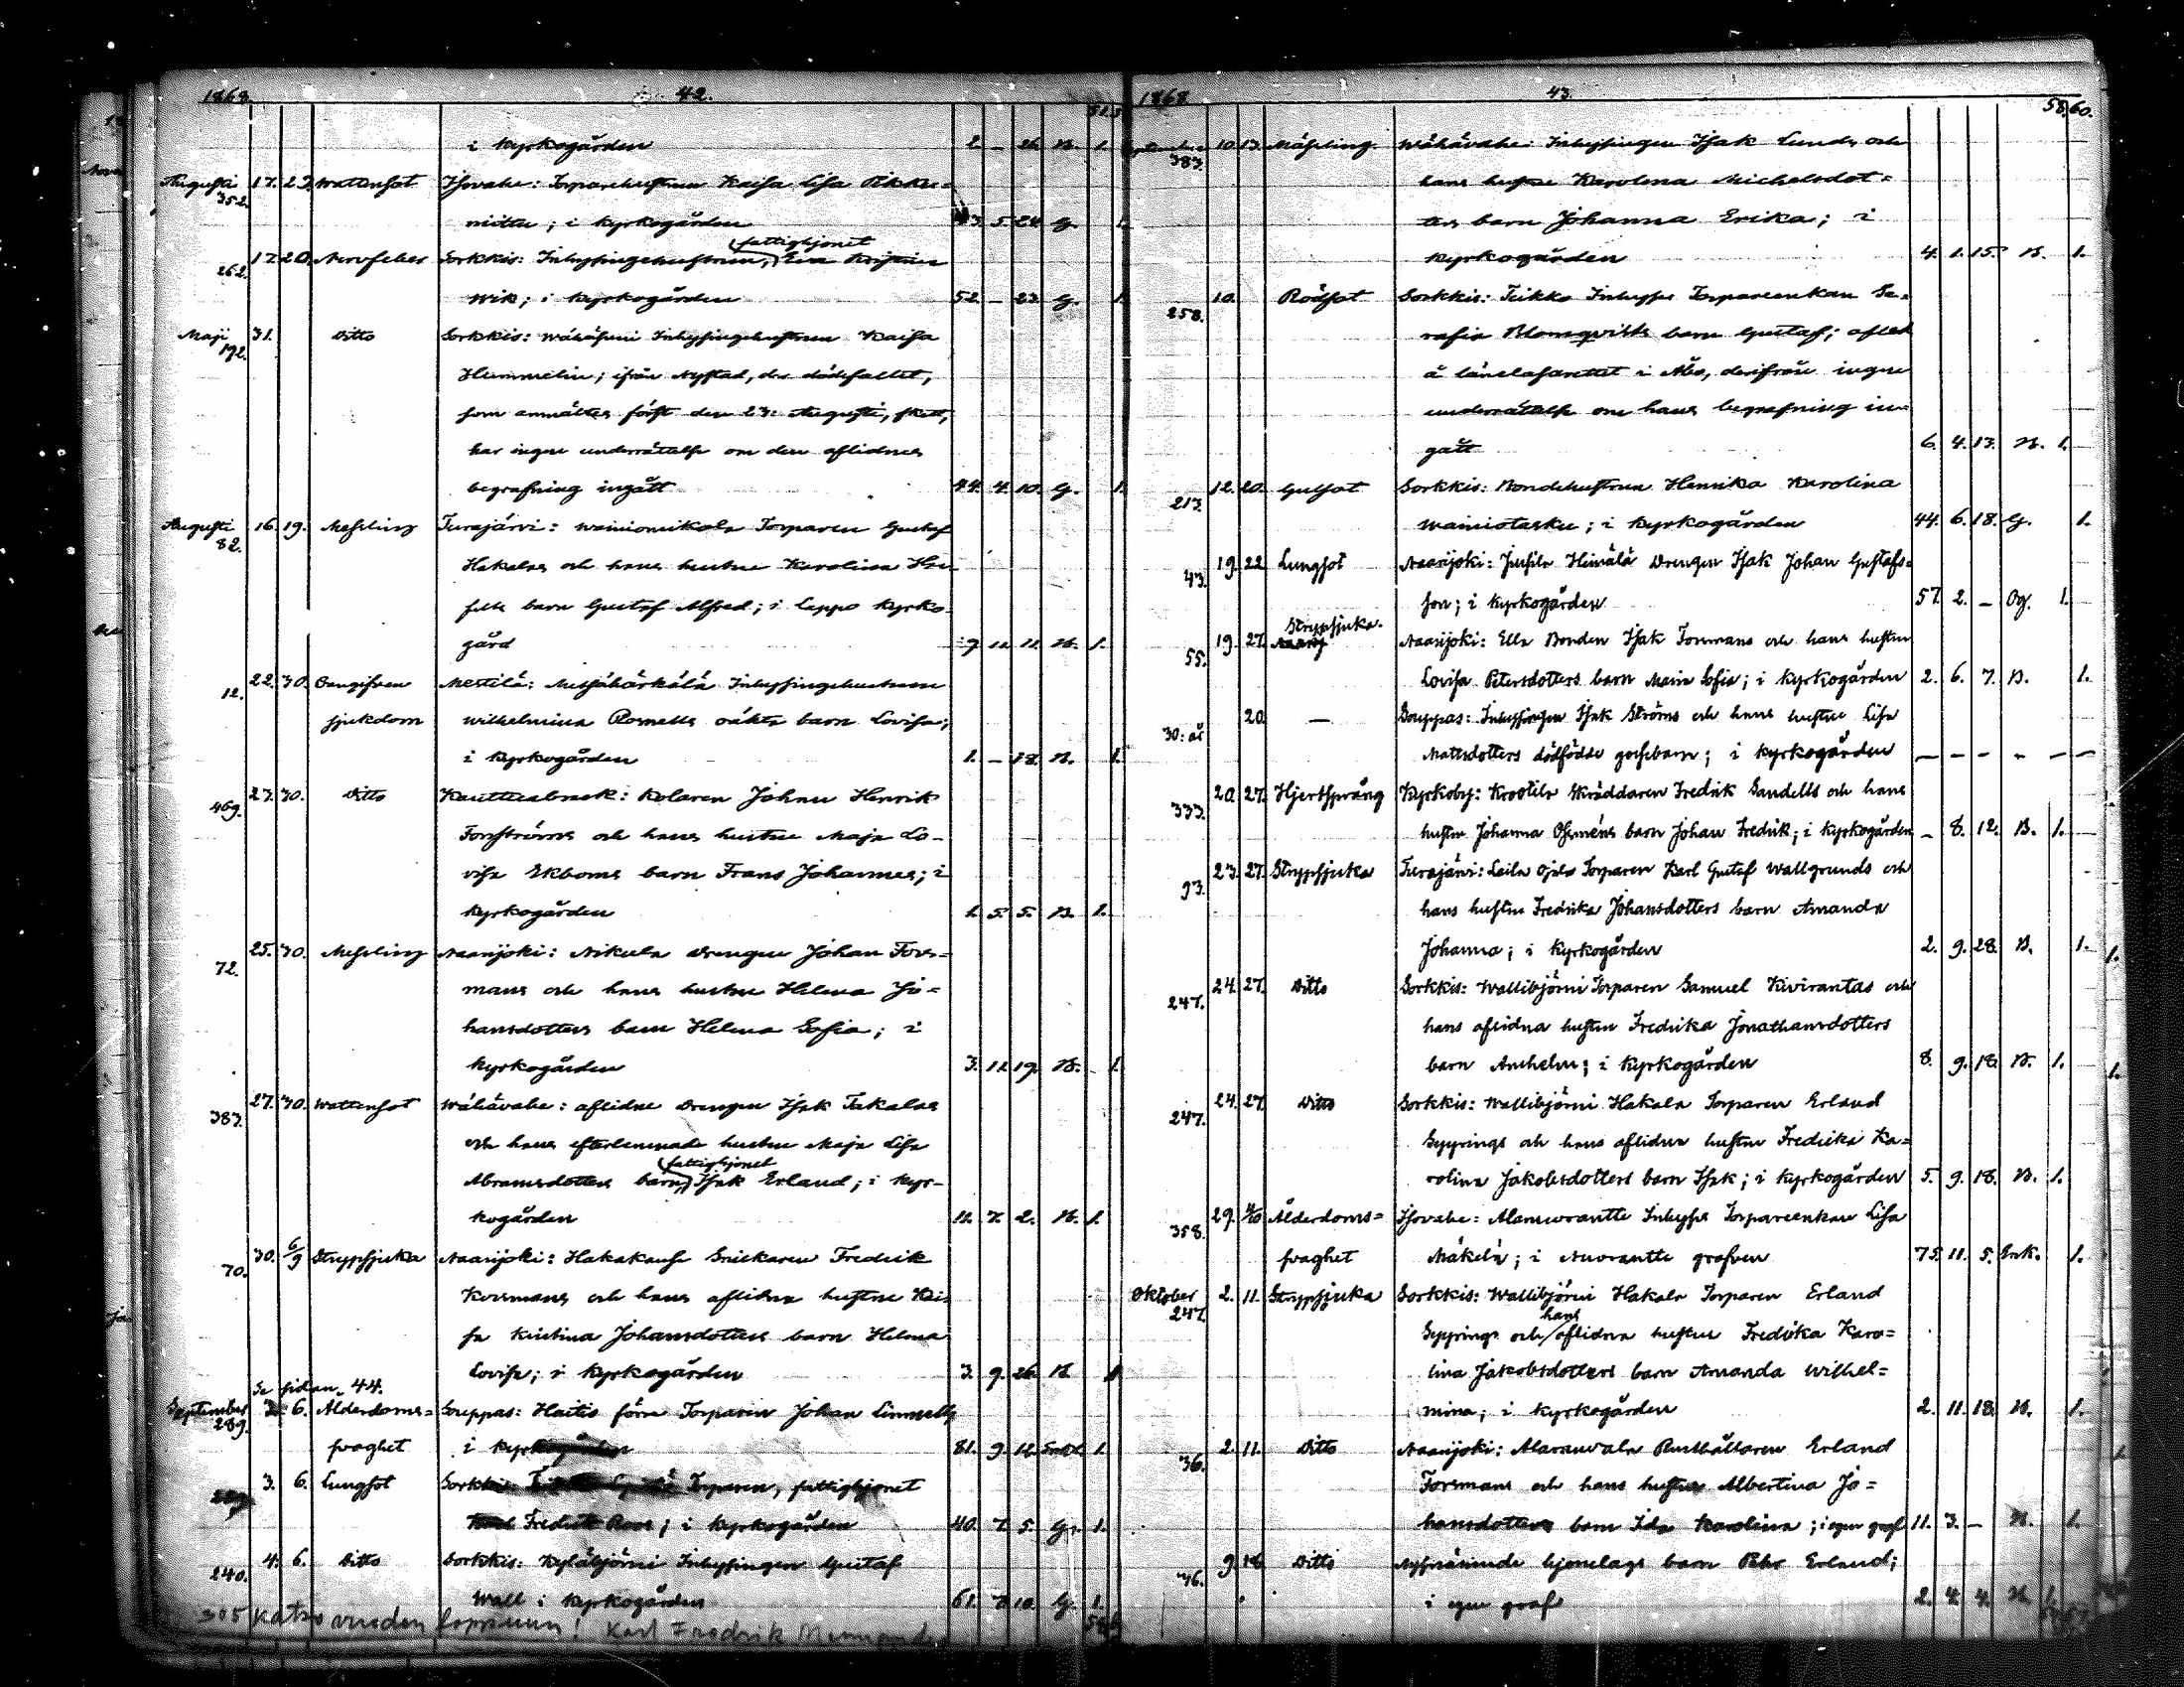 1868. 42. 51. 5
i kyrkogården 2. – 26. B. 1.
Augusti 352. 17. 23. Wattusot Isovahe: Torparehustrun Kaisa Lisa Pikku-
mittu; i kyrkogården 43. 5. 24. G. 1.
fattighjonet
262. 17. 20. Nervfeber Sorkkis: Inhysingehustrun, Eva Kristin
Wik; i kyrkogården 52. – 23. G. 1.
Maji 192. 31. Ditto Sorkkis: Inhysingehustrun Kaisa
Hummelin; ifrån Nystad, der dödsfallet,
som anmältes först den 23: Augusti, skett,
har ingen underrättelse om den aflidnes
begrafning ingått 44. 4. 10. G. 1.
Augusti 82. 16. 19. Messling Turajärvi: Wainiomikola Torparen Gustaf
Hakalas och hans hustru Karolina
barn Gustaf Alfred; i Lappo kyrko-
gård 7 11. 11. B. 1.
12. 22. 30. Oangifven Mestilä: Inhysingehustrun
sjukdom Wilhelmina Rosnells oäkta barn Lovisa;
i kyrkogården 1. – 18. B. 1.
469. 27. 30. Ditto Kauttuabruk: Kolaren Johan Henrik
Forsströms och hans hustru Maja Lo-
visa Ekboms barn Frans Johannes; i
kyrkogården 1. 5. 5. B. 1.
72. 25. 30. Messling Naarijoki: Nikula Drengen Johan Fors-
mans och hans hustru Helena Jo-
hansdotters barn Helena Sofia; i
kyrkogården 3. 11. 19. B. 1.
387. 27. 30. Wattusot Wähävahe: aflidne Drengen Isak Takalas
och hans efterlemnade hustru Maja Lisa
fattighjonet
Abramsdotters barn, Isak Erland; i kyr-
kogården 11. 7. 2. B. 1.
70. 30. 6/9 Strypsjuka Naarijoki: Hakakausi Snickaren Fredrik
Korsmans och hans aflidna hustru Kai-
sa Kristina Johansdotters barn Helena
Lovisa; i kyrkogården 3. 9. 26. B. 1
Se sidan 44.
September 289. 2. 6. Ålderdoms- Souppas: Haitis förre Torparen Johan Linnell
svaghet i kyrkogården 81. 9. 12. Enkl. 1.
3. 6. Lungsot Sorkkis: Torparen, fattighjonet
Fredrik Roos; i kyrkogården 40. 7. 5. G. 1.
240. 4. 6. Ditto Sorkkis: Kyläbjörni Inhysingen Gustaf
Wall i kyrkogården 61. 7. 10. G. 1.
305 katso vuoden loppuun! Karl Fredrik
1868 43. 58. 60.
September 383. 10. 13. Mässling. Wähävahe: Inhysingen Isak Lunds och
hans hustru Karolina Michelsdot-
ters barn Johanna Erika; i
kyrkogården 4. 1. 15. B. 1.
258. 10. Rödsot Sorkkis: Teikko Inhyses Torpareenkan Se-
rafia Blomqvists barn Gustaf; afled
å länelasarettet i Åbo, derifrån ingen
underrättelse om hans begrafning in-
gått 6. 4. 13. B. 1.
213. 12. 20. Gulsot Sorkkis: Bondehustrun Henrika Karolina
Wainiotasku; i kyrkogården 44. 6. 18. G. 1.
43. 19. 22 Lungsot Naarijoki: Jussila Heinälä Drengen Isak Johan Gustafs-
son; i kyrkogården 57. 2. – Og. 1.
Strypsjuka.
55. 19. 27. Naarij Naarijoki: Ella Bonden Isak Forsmans och hans hustru
Lovisa Petersdotters barn Maria Sofia; i kyrkogården 2. 6. 7. B. 1.
30: år 20. – Souppas: Inhysingen Isak Ströms och hans hustru Lisa
Mattsdotters dödfödde gossebarn; i kyrkogården – – – – – –
333. 20. 27. Hjertsprång Kyrkoby: Krootila Skräddaren Fredrik Sandells och hans
hustru Johanna Ohsméns barn Johan Fredrik; i kyrkogården – 8. 12. B. 1.
93. 23. 27. Strypsjuka Turajärvi: Laila Ojala Torparen Karl Gustaf Wallgrunds och
hans hustru Fredrika Johansdotters barn Amanda
Johanna; i kyrkogården 2. 9. 28. B. 1.
247. 24. 27. Ditto Sorkkis: Wallibjörni Torparen Samuel Kivirantas och
hans aflidna hustru Fredrika Jonathansdotters
barn Anshelm; i kyrkogården 8. 9. 18. B. 1.
247. 24. 27. Ditto Sorkkis: Wallibjörni Hakala Torparen Erland
Sypprings och hans aflidna hustru Fredrika Ka-
rolina Jakobsdotters barn Isak; i kyrkogården 5. 9. 18. B. 1.
358. 29. 4/10 Ålderdoms- Isovahe: Alanuorantte Inhyses Torpareenkan Lisa
svaghet Mäkelä; i Nuorantte grafven 75. 11. 5. Enk. 1.
Oktober 247. 2. 11. Strypsjuka Sorkkis: Wallibjörni Hakala Torparen Erland
hans
Sypprings och aflidna hustru Fredrika Karo-
lina Jakobsdotters barn Amanda Wilhel-
mina; i kyrkogården 2. 11. 18. B. 1.
36. 2. 11. Ditto Naarijoki: Alarauvala Rusthållaren Erland
Forsmans och hans hustru Albertina Jo-
hansdotters barn Ida Karolina; i egen graf 11. 3. – B. 1.
36. 9. 18 Ditto Nyssnämnde hjonelags barn Erland;
i egen graf 2. 4. 4. B. 1.